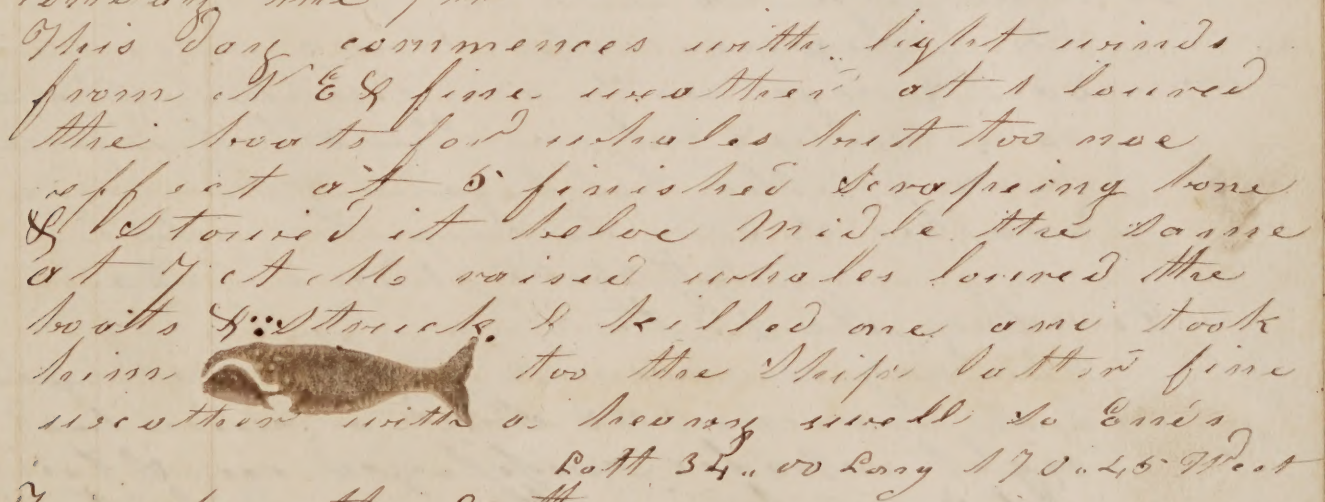 This Day commences with light winds
from N E & fine weather at 1 loured
the boats for whales but too noe
effect at 5 finished Scrapeing bone
& Stoured it beloe Midle the Same
at 7 A M raised whales loured the
boats & Struck & killed one and took
him too the Ship latter fine
weather with a heavy swell So Ends
Latt 34,,00 Long 170,,45 West